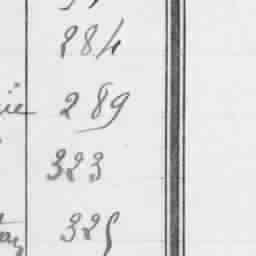 284
289
323
325